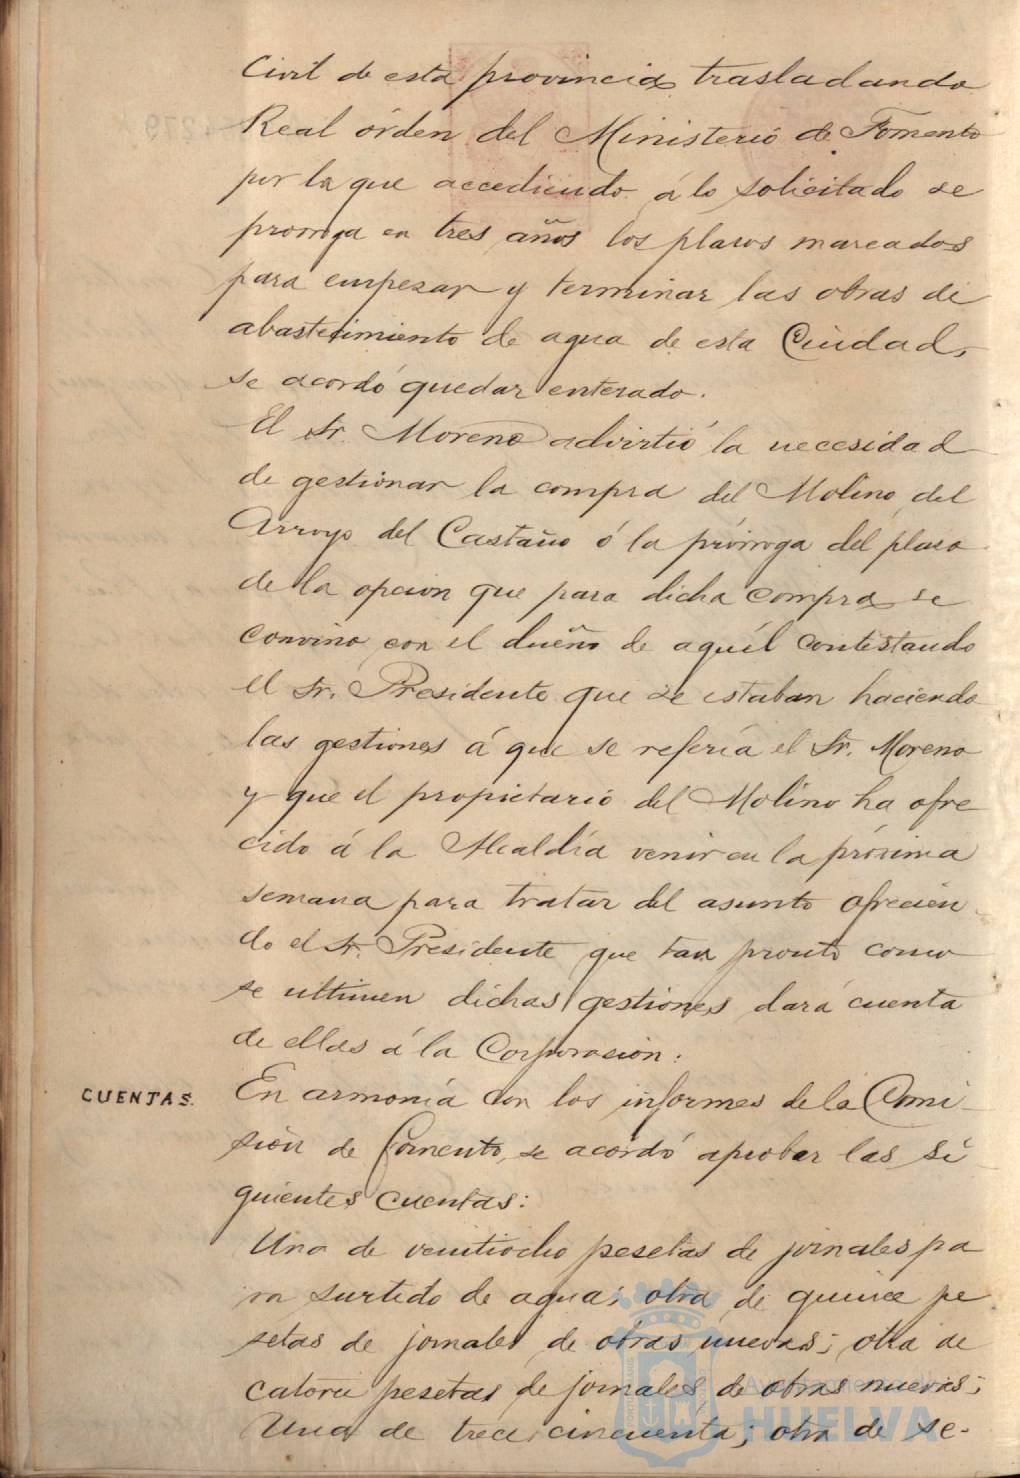 Civil de esta provincia trasladando
Real órden del Ministerio de Fomento
por la que accediendo á lo solicitado se
prorroga en tres años los plasos marcados
para empesar y terminar las obras de
abastecimiento de agua de esta Ciudad,
se acordó quedar enterado.
El Sr. Moreno advirtió la necesidad
de gestionar la compra del Molino del
Arroyo del Castaño ó la prórroga del plaso
de la opcion que para dicha compra se
convino con el dueño de aquél contestando
el Sr. Presidente que se estaban haciendo
las gestiones á que se refería el Sr. Moreno
y que el propietario del Molino ha ofre
cido á la Alcaldía venir en la próxima
semana para tratar del asunto ofrecien
do el Sr. Presidente que tan pronto como
se ultimen dichas gestiones dará cuenta
de ellas á la Corporacion.
CUENTAS. En armonía con los informes de la Comi-
sión de Fomento, se acordó aprobar las si
guientes cuentas:
Una de veintiocho pesetas de jornales pa
ra surtido de agua; otra de quince pe
setas de jornales de obras nuevas; otra de
catorce pesetas de jornales de obras nuevas;
Una de trece cincuenta; otra de se-
Ayuntamiento de
HUELVA